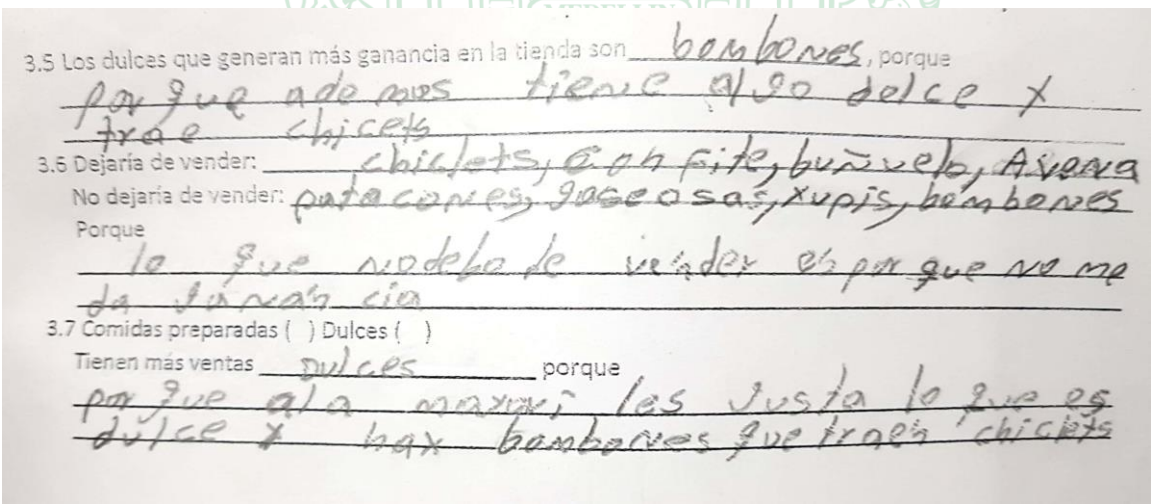 3.5 Los dulces que generan más ganancia en la tienda son bombones, porque
por que ademas tiene algo delce y
trae chicets
3.6 Dejaría de vender: chiclets, confite, buñuelo, Avena
No dejaría de vender: patacones, gaseosas, yupis, bombones
Porque
lo que nodebo de vender es por que no me
da ganancia
3.7 Comidas preparadas ( ) Dulces ( )
Tienen más ventas Dulces porque
por que ala les gusta lo que es
dulce y hay bombones que traen chiclets